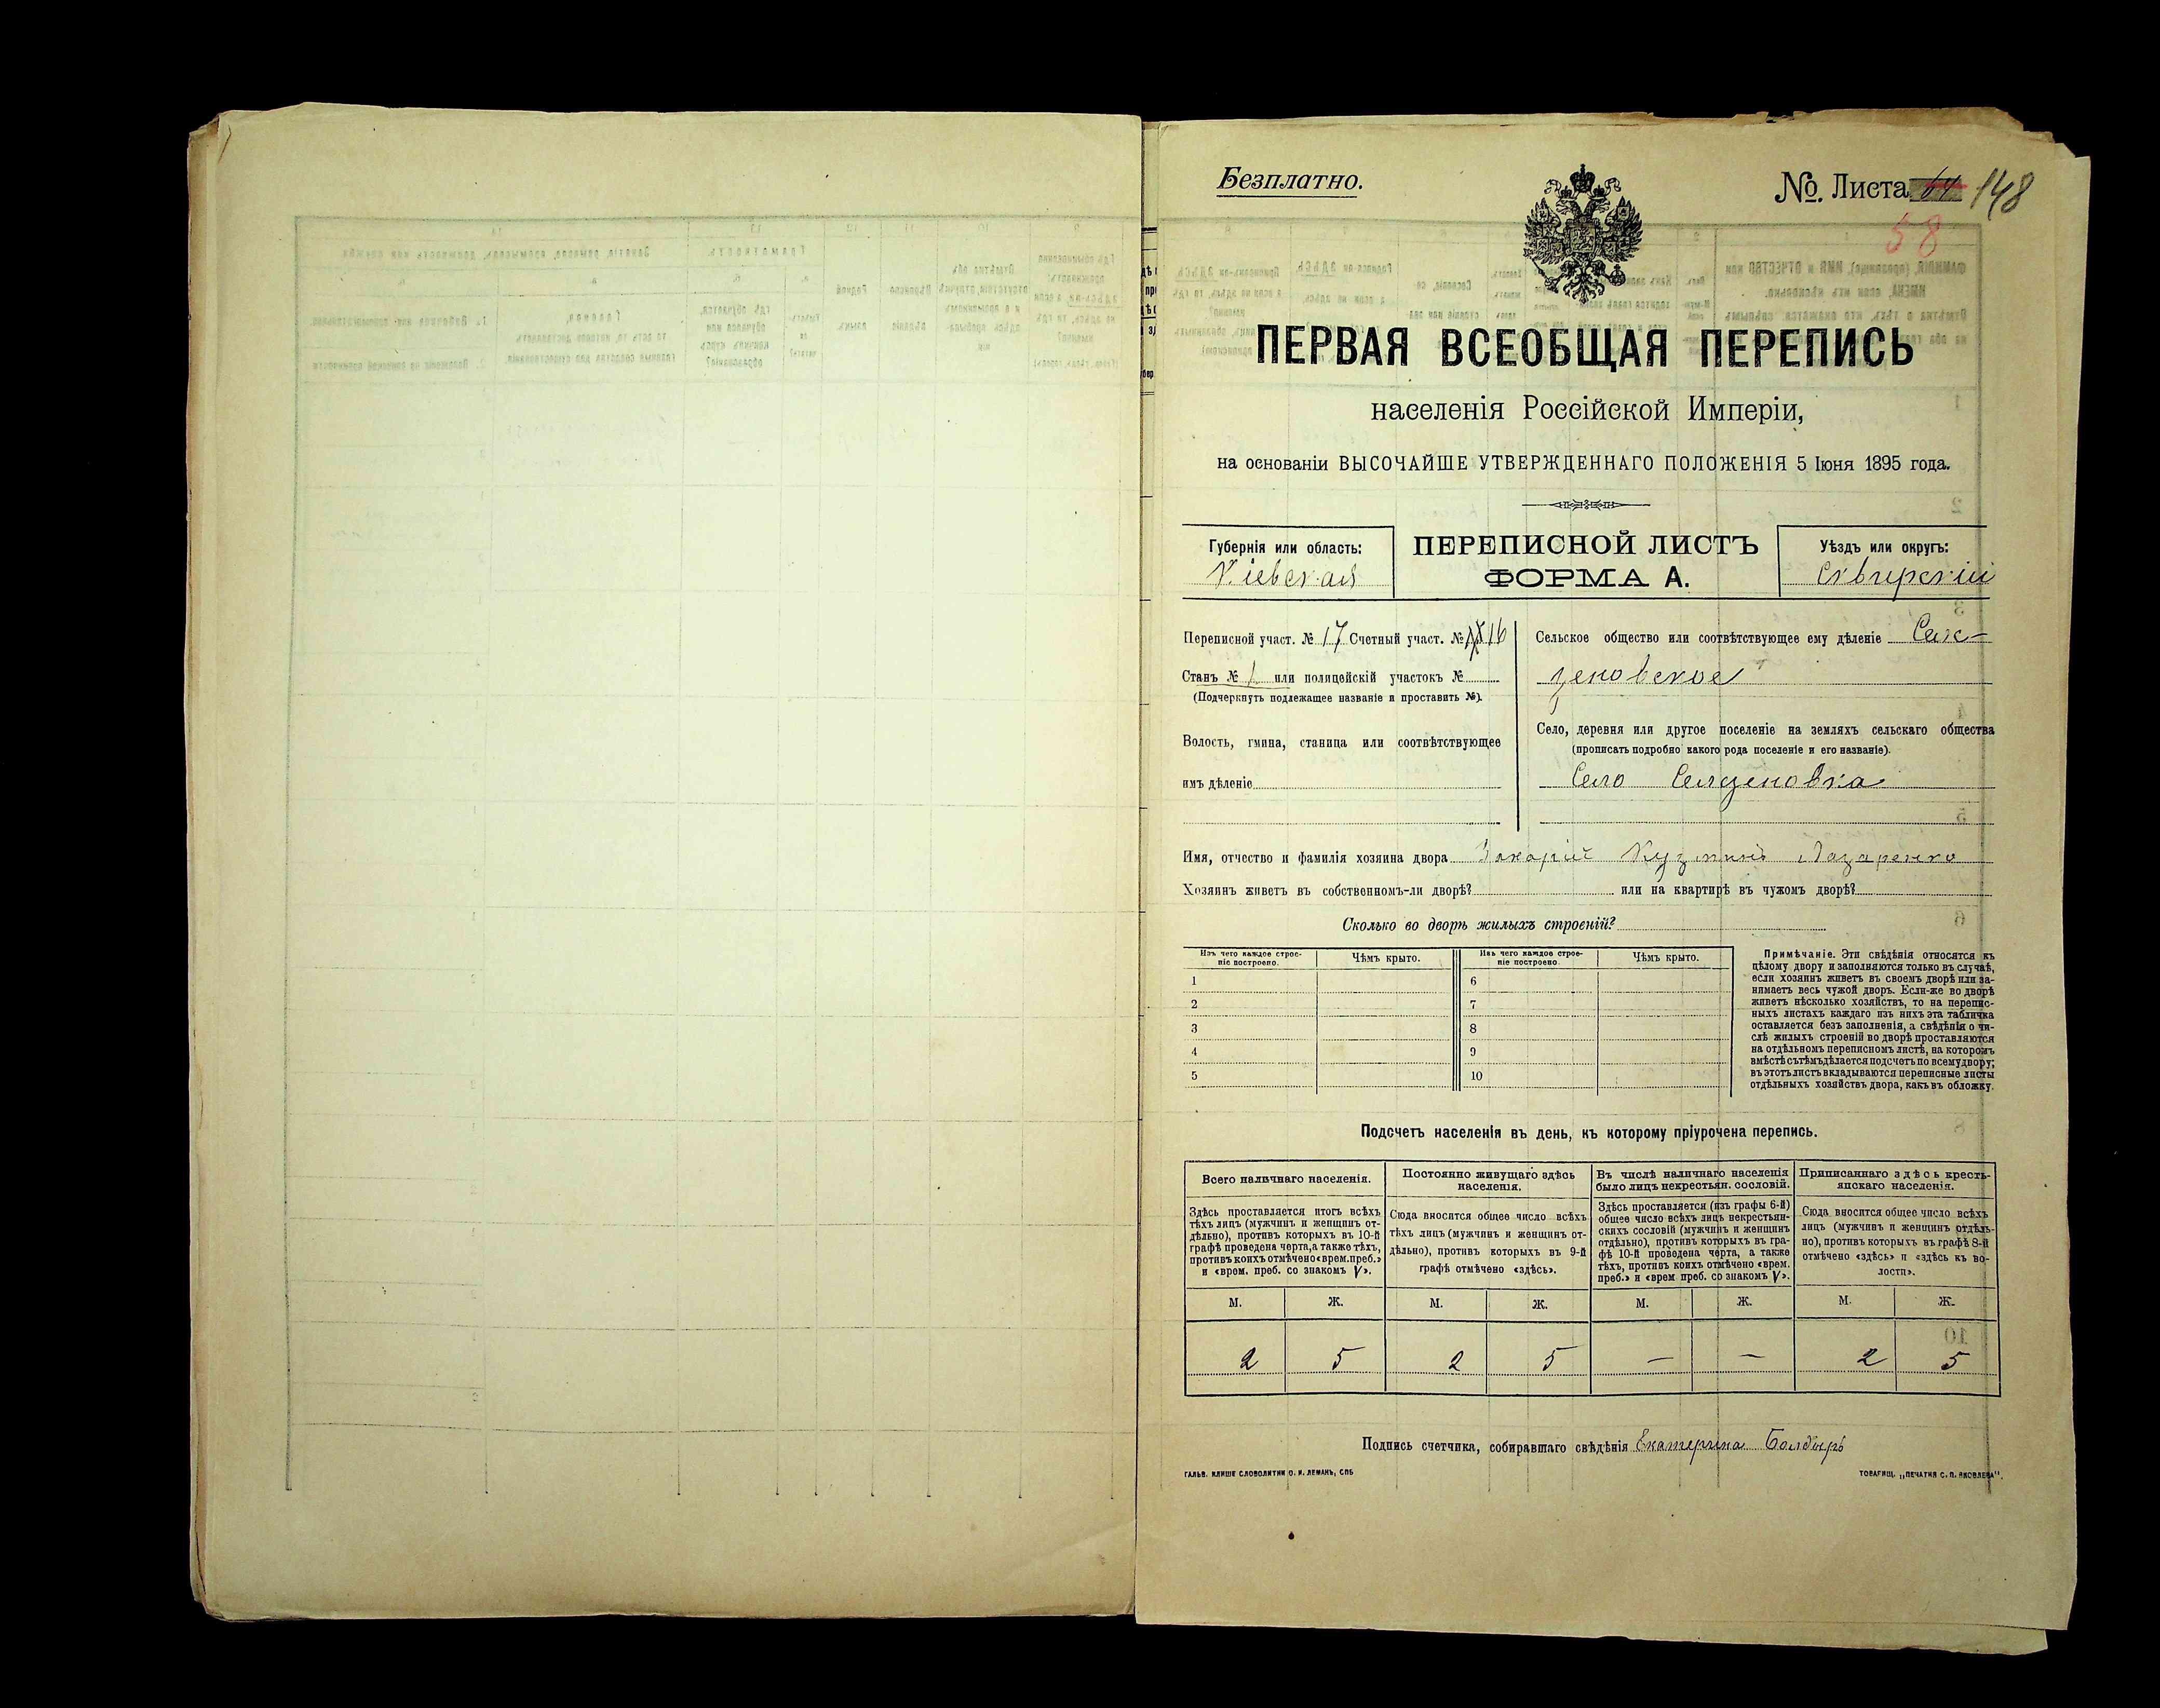 Безплатно.
№. Листа 148
58
ПЕРВАЯ ВСЕОБЩАЯ ПЕРЕПИСЬ
населенія Россійской Имперіи,
на основаніи ВЫСОЧАЙШЕ УТВЕРЖДЕННАГО ПОЛОЖЕНІЯ 5 Іюня 1895 года.
Губернія или область:
Кіевская
ПЕРЕПИСНОЙ ЛИСТЪ
ФОРМА А.
Уѣздъ или округъ:
Сквирскій
Переписной участ. № 17 Счетный участ. № 16
Станъ № 1 или полицейскій участокъ №
(Подчеркнуть подлежащее названіе и проставить №).
Волость, гмина, станица или соотвѣтствующее
имъ дѣленіе
Сельское общество или соотвѣтствующее ему дѣленіе Сел-
зеновское
Село, деревня или другое поселеніе на земляхъ сельскаго общества
(прописать подробно какого рода поселеніе и его названіе).
Село Селезеновка
Имя, отчество и фамилія хозяина двора Захарій Кузминъ Лазаренко
Хозяинъ живетъ въ собственномъ-ли дворѣ? или на квартирѣ въ чужомъ дворѣ?
Сколько во дворѣ жилыхъ строеній?
Изъ чего каждое строе-
ніе построено.
Чѣмъ крыто.
Изъ чего каждое строе-
ніе построено.
Чѣмъ крыто.
1
6
2
7
3
8
4
9
5
10
Примѣчаніе. Эти свѣдѣнія относятся къ
цѣлому двору и заполняются только въ случаѣ,
если хозяинъ живетъ въ своемъ дворѣ или за-
нимаетъ весь чужой дворъ. Если-же во дворѣ
живетъ нѣсколько хозяйствъ, то на перепис-
ныхъ листахъ каждаго изъ нихъ эта табличка
оставляется безъ заполненія, а свѣдѣнія о чи-
слѣ жилыхъ строеній во дворѣ проставляются
на отдѣльномъ переписномъ листѣ, на которомъ
вмѣстѣ съ тѣмъ дѣлается подсчетъ по всему двору;
въ этотъ листъ вкладываются переписные листы
отдѣльныхъ хозяйствъ двора, какъ въ обложку.
Подсчетъ населенія въ день, къ которому пріурочена перепись.
Всего наличнаго населенія.
Постоянно живущаго здѣсь
населенія.
Въ числѣ наличнаго населенія
было лицъ некрестьян. сословій.
Приписаннаго здѣсь кресть-
янскаго населенія.
Здѣсь проставляется итогъ всѣхъ
тѣхъ лицъ (мужчинъ и женщинъ от-
дѣльно), противъ которыхъ въ 10-й
графѣ проведена черта, а также тѣхъ,
противъ коихъ отмѣчено «врем. преб.»
и «врем. преб. со знакомъ V».
Сюда вносится общее число всѣхъ
тѣхъ лицъ (мужчинъ и женщинъ от-
дѣльно), противъ которыхъ въ 9-й
графѣ отмѣчено «здѣсь».
Здѣсь проставляется (изъ графы 6-й)
общее число всѣхъ лицъ некрестьян-
скихъ сословій (мужчинъ и женщинъ
отдѣльно), противъ которыхъ въ гра-
фѣ 10-й проведена черта, а также
тѣхъ, противъ коихъ отмѣчено «врем.
преб.» и «врем преб. со знакомъ V».
Сюда вносится общее число всѣхъ
лицъ (мужчинъ и женщинъ отдѣль-
но), противъ которыхъ въ графѣ 8-й
отмѣчено «здѣсь» и «здѣсь къ во-
лости».
М. Ж. М. Ж. М. Ж. М. Ж.
2 5 2 5 — — 2 5
Подпись счетчика, собиравшаго свѣдѣнія Екатерина Болдырь
ГАЛЬВ. КЛИШЕ СЛОВОЛИТНИ О. И. ЛЕМАНЪ, СПБ
ТОВАРИЩ. „ПЕЧАТНЯ С. П. ЯКОВЛЕВА".